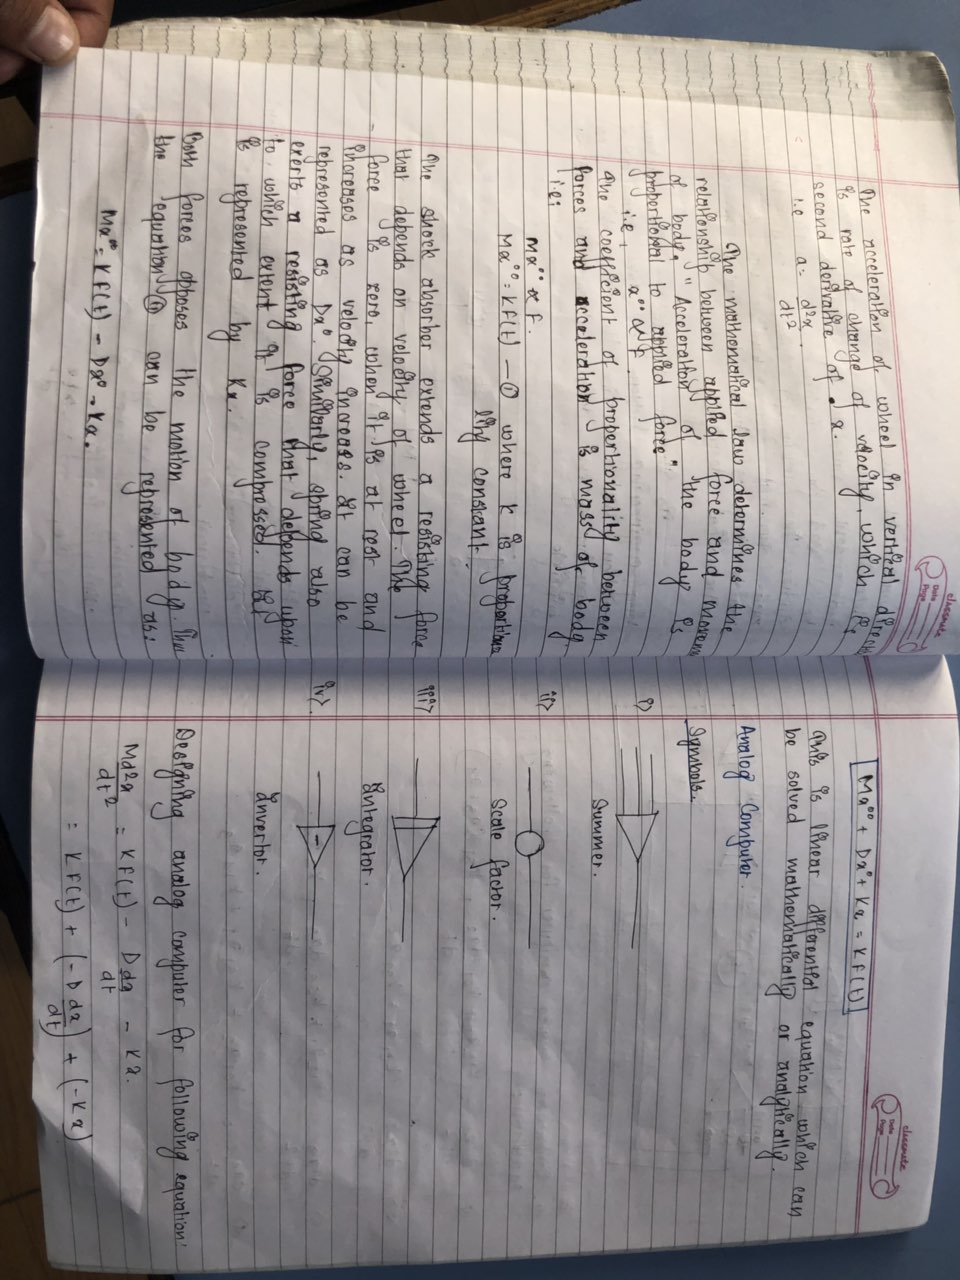 classmate
Date
Page
The acceleration of wheel in vertical direct
is rate of change of velocity, which is
second derivative of x.
i.e a = d²x
dt²
The mathematical law determines the
relationship between applied force and movem
of body. "Acceleration of the body is
proportional to applied force"
i.e, x°° ∝ F
The coefficient of proportionality between
forces and acceleration is mass of body
i.e:
Mx°° ∝ F.
Mx°° = KF(t) — ① where K is proportiona
lity constant.
The shock absorber extends a resisting force
that depends on velocity of wheel. The
force is zero, when it is at rest and
increases as velocity increases. It can be
represented as Dx°. Similarly, spring also
exerts a resisting force that depends upon
to which extent it is compressed. If
is represented by Kx.
Both forces opposes the motion of body. Thu
the equation ① can be represented as:
Mx°° = KF(t) - Dx° - Kx.
classmate
Date
Page
Mx°° + Dx° + Kx = KF(t)
This is linear differential equation which can
be solved mathematically or analytically.
Analog Computer.
Symbols.
i>
Summer.
ii>
Scale factor.
iii>
Integrator.
iv>
-
Invertor.
Designing analog computer for following equation:
Md²x = KF(t) - Ddx - Kx.
dt² dt
= KF(t) + (-Ddx) + (-Kx)
dt